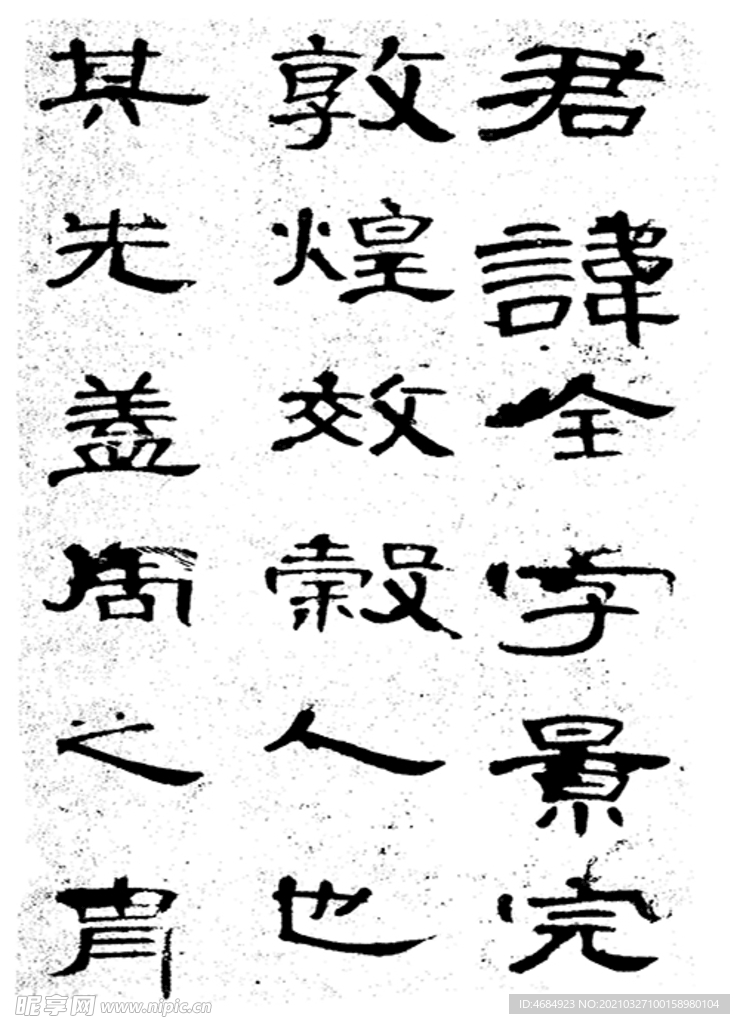 君諱全字景完
敦煌效穀人也
其先蓋周之胄
昵享网 www.nipic.cn
ID:4684923 NO:20210327100158980104